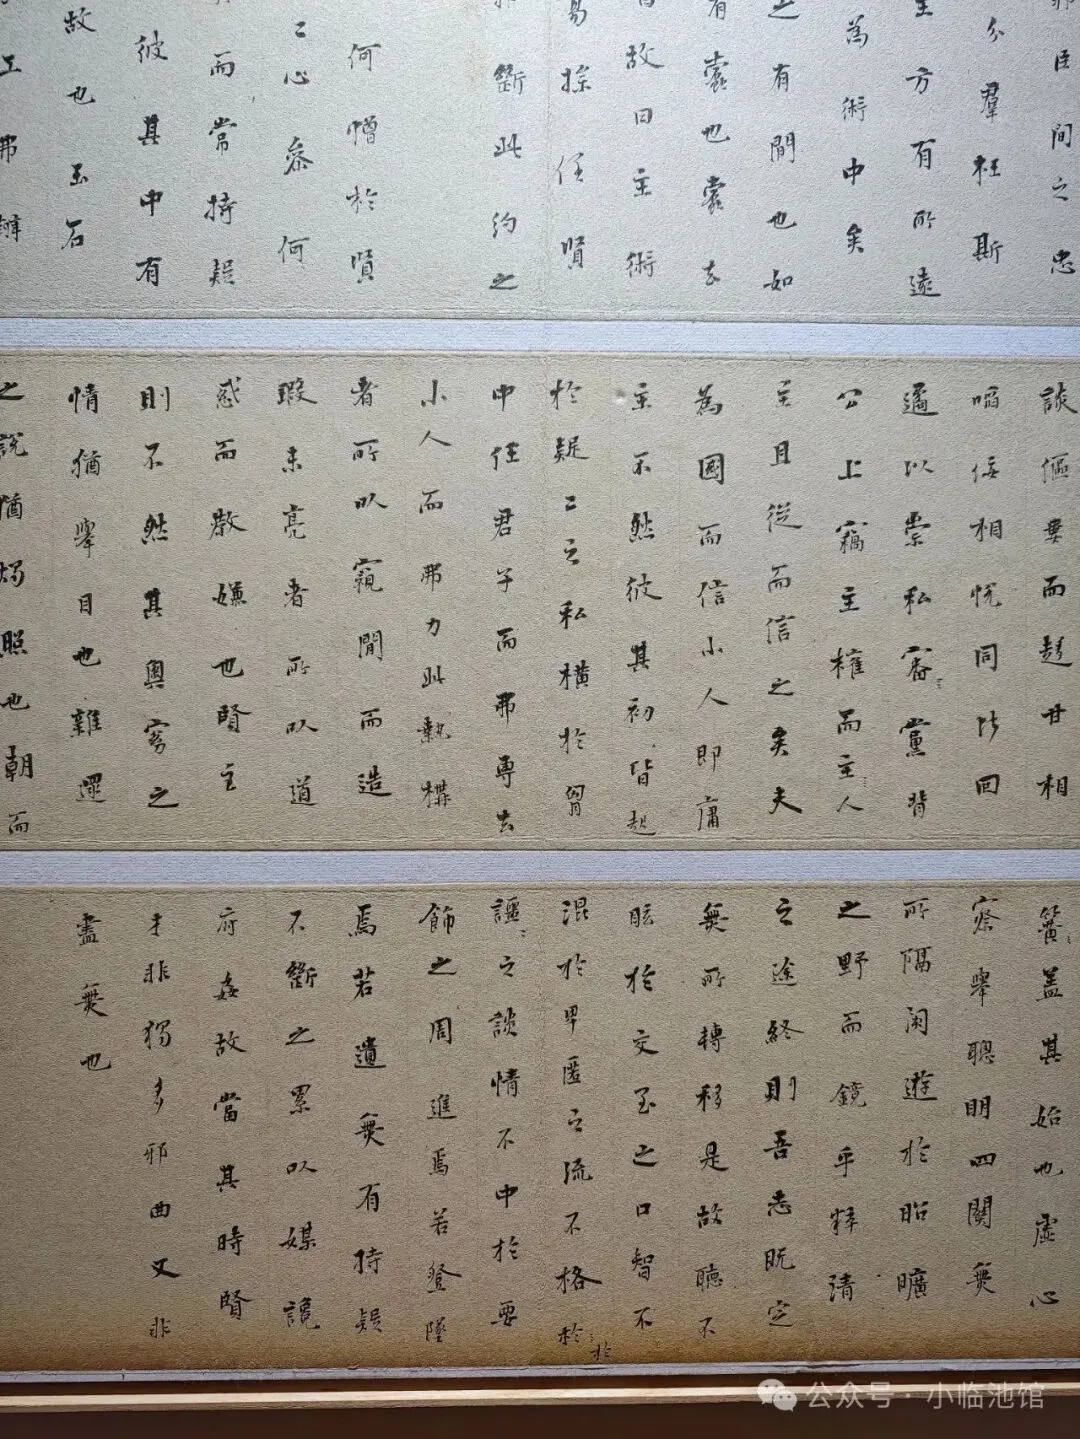 邪臣间之忠
分羣枉斯
主方有所遠
為術中矣
之有間也如
有蠹也蠹去
故曰主術
易採任賢
斷此約之
何憎於賢
心𠫵何
而常持疑
彼其中有
故也玉石
工弗辨
談傴㒇而趍甘相
啗佞相悦同比回
遹以祟私審黨背
公上竊主權而主人
主且從而信之矣夫
為國而信小人即庸
主不然彼其初皆起
於疑之私橫於胷
中任君子而弗專去
小人而弗力此執構
者所以窺間而造
瑕未亮者所以道
惑而散嫌也賢主
則不然其奧窔之
情猶舉目也雜遝
之說猶燭照也朝而
簧蓋其始也虛心
察舉聰明四闢無
所隔闭遊於昭曠
之野而鏡乎粹清
之途終則吾志既定
無所轉移是故聽不
眩於交至之口智不
混於畀匿之流不格於
讍之談情不中於要
飾之周進焉若登墜
焉若遺無有持疑
不斷之累以媒讒
府姦故當其時賢
才非獨多邪曲又非
盡無也
公众号·小临池馆